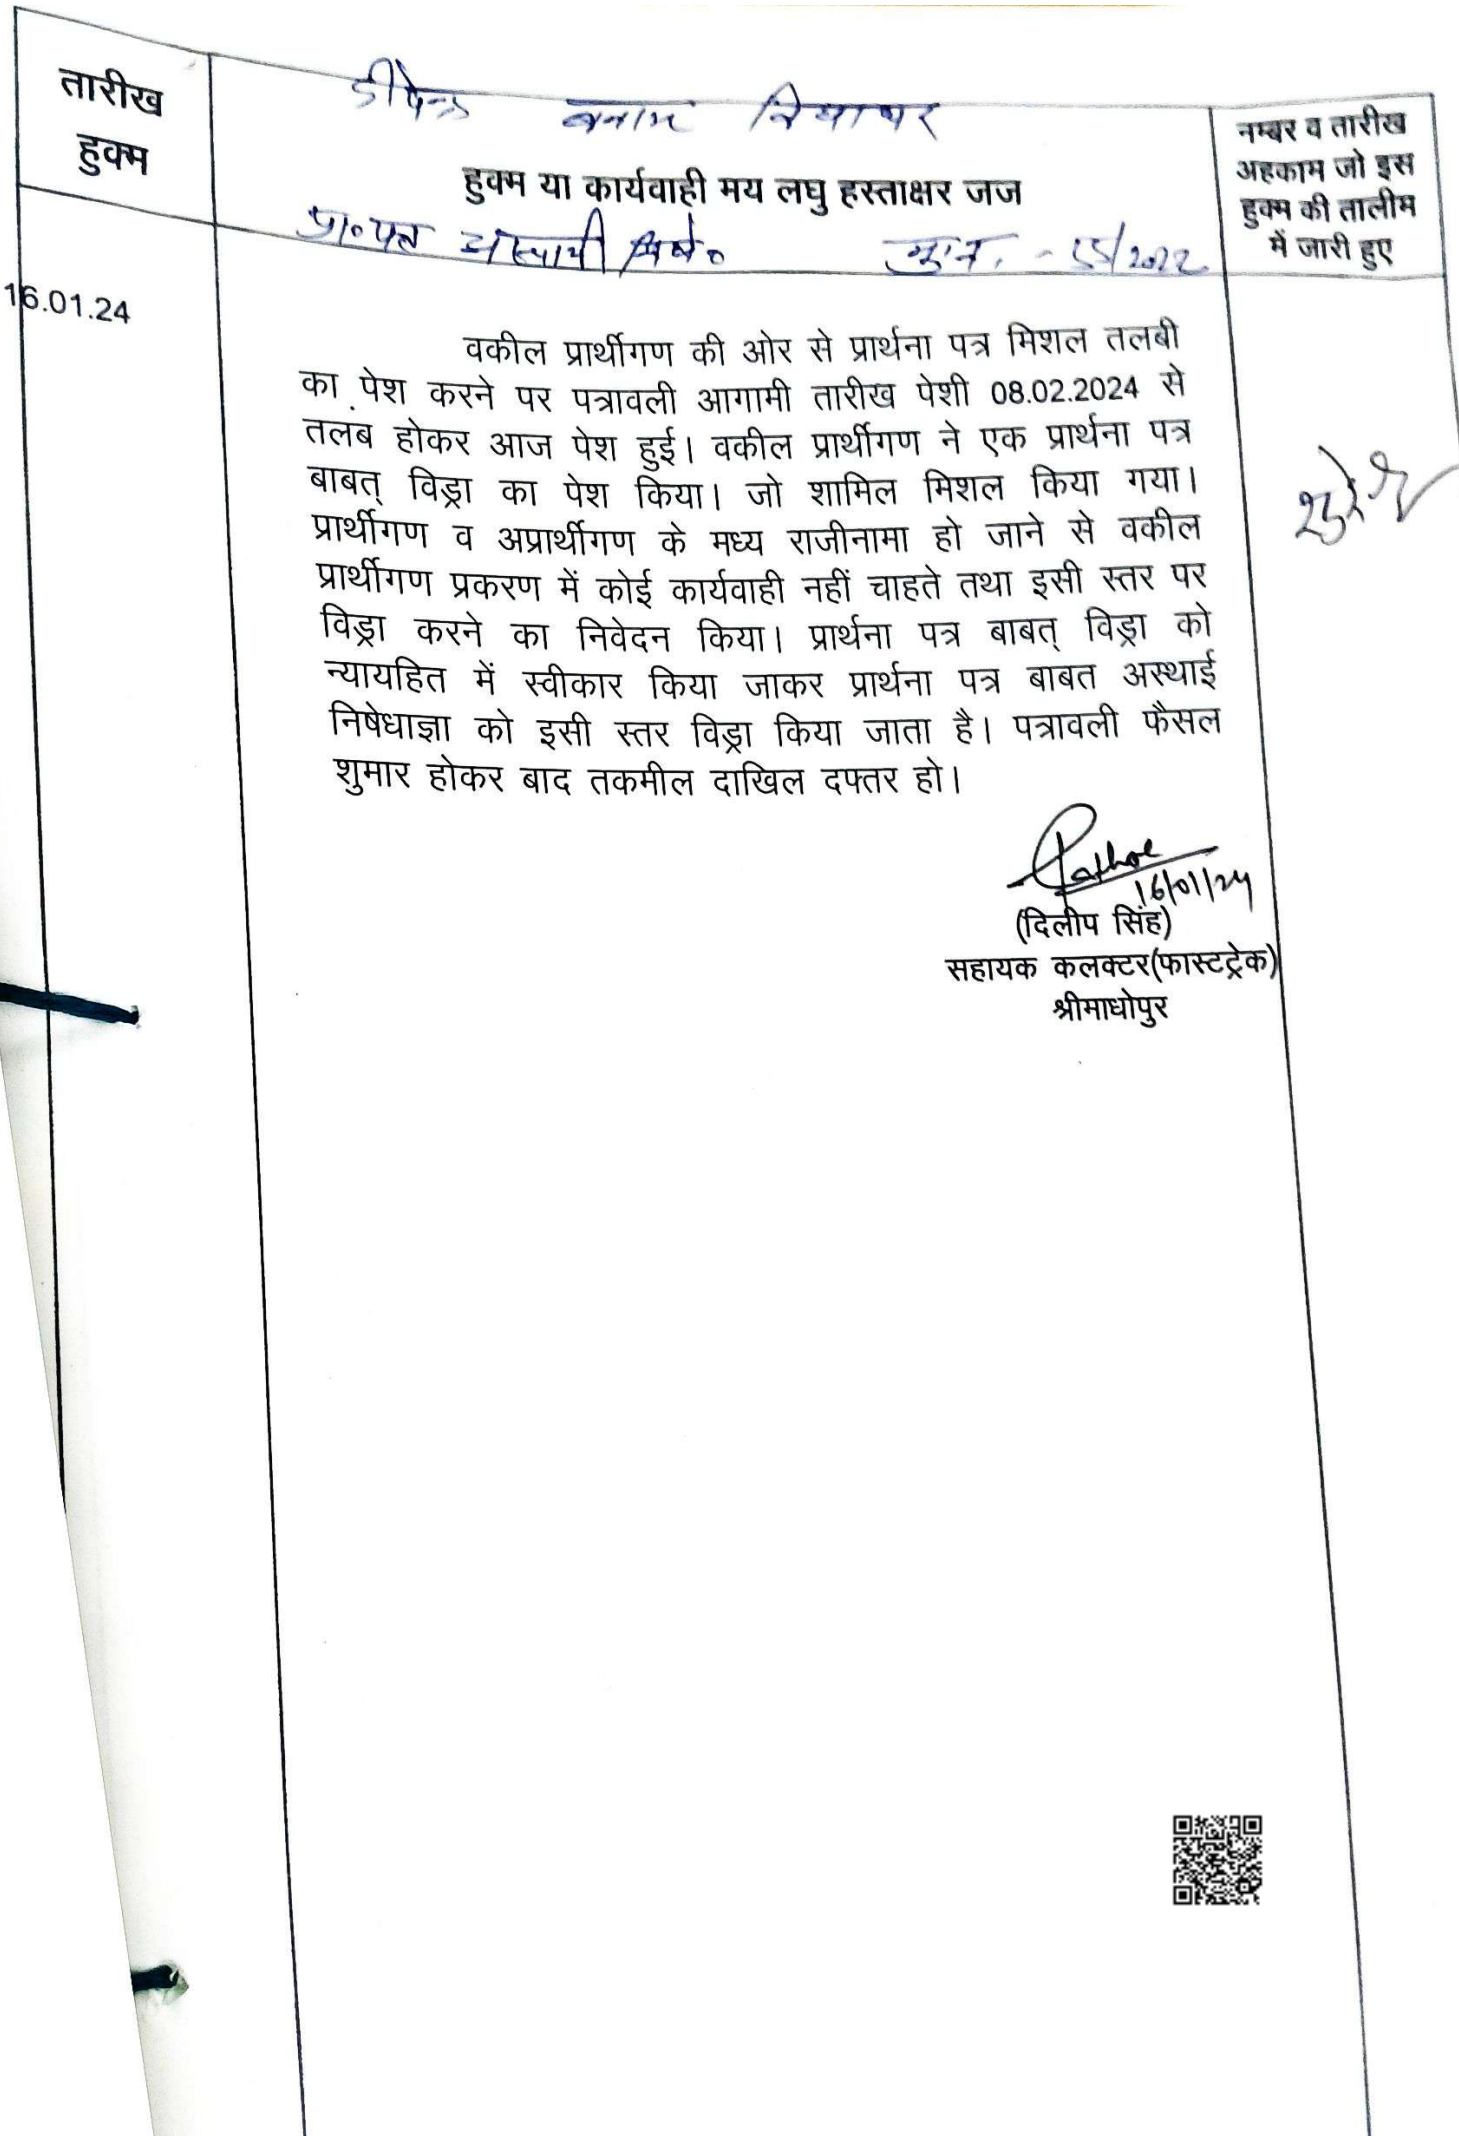 तारीख
हुक्म
बनाम
हुक्म या कार्यवाही मय लघु हस्ताक्षर जज
नम्बर व तारीख
अहकाम जो इस
हुक्म की तालीम
में जारी हुए
प्रा०पत्र अस्थायी निषे०
/2022
16.01.24
वकील प्रार्थीगण की ओर से प्रार्थना पत्र मिशल तलबी
का पेश करने पर पत्रावली आगामी तारीख पेशी 08.02.2024 से
तलब होकर आज पेश हुई। वकील प्रार्थीगण ने एक प्रार्थना पत्र
बाबत् विड्रा का पेश किया। जो शामिल मिशल किया गया।
प्रार्थीगण व अप्रार्थीगण के मध्य राजीनामा हो जाने से वकील
प्रार्थीगण प्रकरण में कोई कार्यवाही नहीं चाहते तथा इसी स्तर पर
विड्रा करने का निवेदन किया। प्रार्थना पत्र बाबत् विड्रा को
न्यायहित में स्वीकार किया जाकर प्रार्थना पत्र बाबत अस्थाई
निषेधाज्ञा को इसी स्तर विड्रा किया जाता है। पत्रावली फैसल
शुमार होकर बाद तकमील दाखिल दफ्तर हो।
16/01/24
(दिलीप सिंह)
सहायक कलक्टर(फास्टट्रेक)
श्रीमाधोपुर